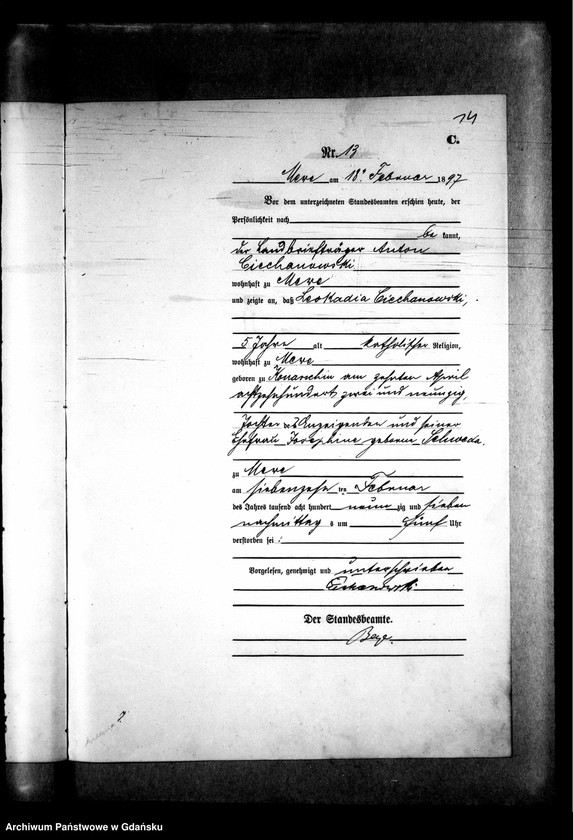 14
C.
Nr. 13
Mewe am 18. Februar 1897
Vor dem unterzeichneten Standesbeamten erschien heute, der
Persönlichkeit nach
be kannt,
der Landbriefträger Anton
Ciechanowski
wohnhaft zu Mewe
und zeigte an, daß Leokadia Ciechanowski,
5 Jahre alt katholischer Religion,
wohnhaft zu Mewe
geboren zu am zehnten April
achtzehnhundert zwei und neunzig,
Tochter des Anzeigenden und seiner
Ehefrau Josephine geborene Schweda.
zu Mewe
am siebenzehn ten Februar
des Jahres tausend acht hundert neun zig und sieben
nachmittag s um fünf Uhr
verstorben sei.
Vorgelesen, genehmigt und unterschrieben
Der Standesbeamte.
Archiwum Państwowe w Gdańsku